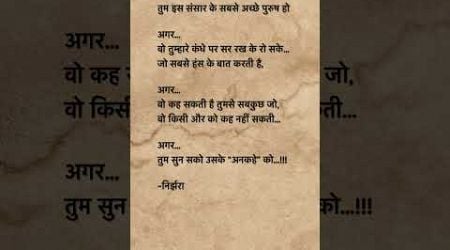 तुम इस संसार के सबसे अच्छे पुरुष हो
अगर...
वो तुम्हारे कंधे पर सर रख के रो सके...
जो सबसे हंस के बात करती है,
अगर...
वो कह सकती है तुमसे सबकुछ जो,
वो किसी और को कह नहीं सकती...
अगर...
तुम सुन सको उसके "अनकहे" को...!!!
-निर्झरा